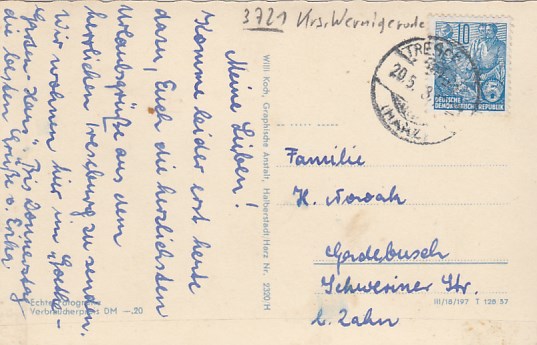 3721 Krs. Wernigerode
Meine Lieben!
Komme leider erst heute
dazu, Euch die herzlichsten
Urlaubsgrüße aus dem
herrlichen Treseburg zu senden.
Wir wohnen hier im „Goethe-
Haus". Bis Donnerstag
die besten Grüße v. Erika
Echte Fotografie
Verbraucherpreis DM —.20
Willi Koch, Graphische Anstalt, Halberstadt/Harz Nr. 2300/H
TRESEBURG
20.5.
(HARZ)
10
DEUTSCHE
DEMOKRATISCHE REPUBLIK
Familie
H. Nowak
Gadebusch
Schweriner Str.
b. Zahn
III/18/197 T 128 57